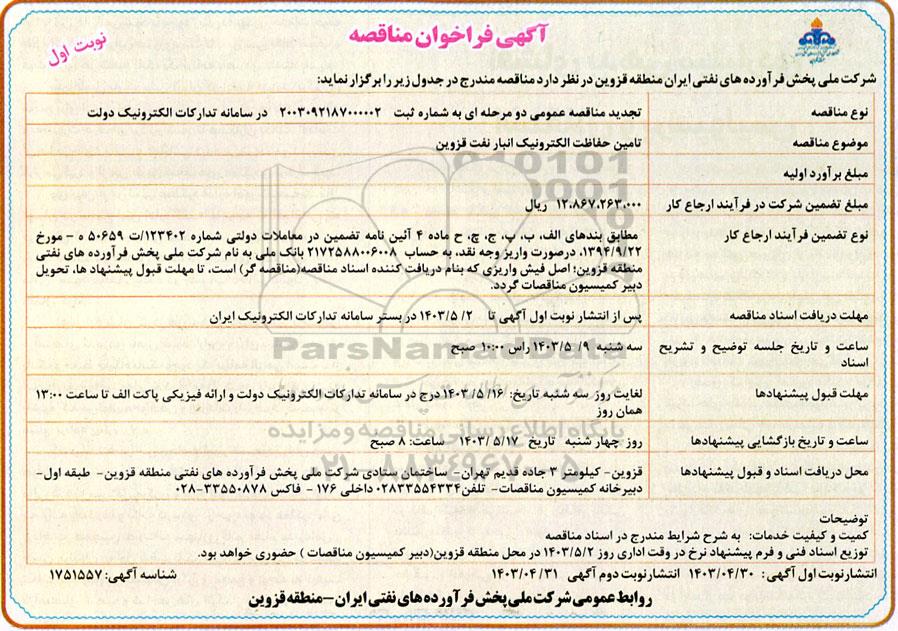 آگهی فراخوان مناقصه
نوبت اول
شرکت ملی پخش فرآورده های نفتی ایران منطقه قزوین در نظر دارد مناقصه مندرج در جدول زیر را برگزار نماید:
نوع مناقصه تجدید مناقصه عمومی دو مرحله ای به شماره ثبت ۲۰۰۳۰۹۲۱۸۷۰۰۰۰۰۲ در سامانه تدارکات الکترونیک دولت
موضوع مناقصه تامین حفاظت الکترونیک انبار نفت قزوین
مبلغ برآورد اولیه
مبلغ تضمین شرکت در فرآیند ارجاع کار ۱۲،۸۶۷،۲۶۳،۰۰۰ ریال
نوع تضمین فرآیند ارجاع کار مطابق بندهای الف، ب، پ، ج، چ، ح ماده ۴ آئین نامه تضمین در معاملات دولتی شماره ۱۲۳۴۰۲/ت ۵۰۶۵۹ ه – مورخ
۱۳۹۴/۹/۲۲، درصورت واریز وجه نقد، به حساب ۲۱۷۲۵۸۸۰۰۶۰۰۸ بانک ملی به نام شرکت ملی پخش فرآورده های نفتی
منطقه قزوین؛ اصل فیش واریزی که بنام دریافت کننده اسناد مناقصه(مناقصه گر) است، تا مهلت قبول پیشنهاد ها، تحویل
دبیر کمیسیون مناقصات گردد.
مهلت دریافت اسناد مناقصه پس از انتشار نوبت اول آگهی تا ۱۴۰۳/۵/۲ در بستر سامانه تدارکات الکترونیک ایران
ساعت و تاریخ جلسه توضیح و تشریح سه شنبه ۱۴۰۳/۵/۹ راس ۱۰:۰۰ صبح
اسناد
مهلت قبول پیشنهادها لغایت روز سه شنبه تاریخ: ۱۴۰۳/۵/۱۶ درج در سامانه تدارکات الکترونیک دولت و ارائه فیزیکی پاکت الف تا ساعت ۱۳:۰۰
همان روز
ساعت و تاریخ بازگشایی پیشنهادها روز چهار شنبه تاریخ ۱۴۰۳/۵/۱۷ ساعت: ۸ صبح
محل دریافت اسناد و قبول پیشنهادها قزوین- کیلومتر ۳ جاده قدیم تهران- ساختمان ستادی شرکت ملی پخش فرآورده های نفتی منطقه قزوین- طبقه اول-
دبیرخانه کمیسیون مناقصات- تلفن۰۲۸۳۳۵۵۴۳۳۴ داخلی ۱۷۶ - فاکس ۳۳۵۵۰۸۷۸-۰۲۸
توضیحات
کمیت و کیفیت خدمات: به شرح شرایط مندرج در اسناد مناقصه
توزیع اسناد فنی و فرم پیشنهاد نرخ در وقت اداری روز ۱۴۰۳/۵/۲ در محل منطقه قزوین(دبیر کمیسیون مناقصات ) حضوری خواهد بود.
انتشار نوبت اول آگهی: ۱۴۰۳/۰۴/۳۰ انتشار نوبت دوم آگهی ۱۴۰۳/۰۴/۳۱ شناسه آگهی: ۱۷۵۱۵۵۷
روابط عمومی شرکت ملی پخش فرآورده های نفتی ایران-منطقه قزوین
ParsNamadData
پایگاه اطلاع رسانی مناقصه و مزایده
۰۲۱-۸۸۳۴۹۶۷۰-۵